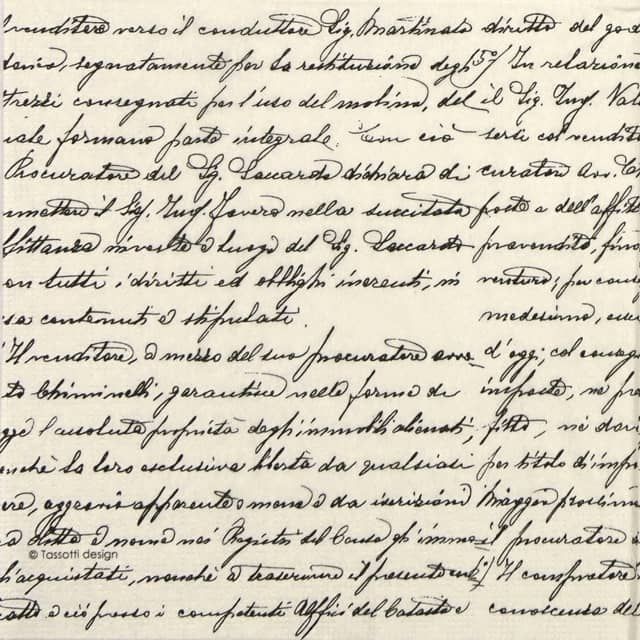 venditore verso il conduttore Sig. Martinato diretto del god
segnatamente per la restituzione degli 5°/ In relazione
consegnati per l'uso del molino, del il Sig. Ing. Val
formano parte integrale. Con ciò sersi col vendit
Procuratore del Sg. Saccardo dichiara di curatore Avv.
il Sg. Ing. Jovero nella succitata poste a dell'affitt
e luogo del Sg. Saccardo provenditò, fino
on tutti i diritti ed obblighi inerenti, in venturo; per cons
sa contenuti e stipulati. medesimo,
Il venditore, a mezzo del suo procuratore avv. d'oggi; col conseg
to Chiminelli, garantisce nelle forme di imposte, ne pre
l'assoluta proprietà degli immobili alienati, fitto, nè dari
onchè la loro esclusiva libertà da qualsiasi per titolo di impo
ere, aggravio apparente o meno e da iscrizioni Maggio prossimo
a ditta e nome nei Registri del Censo gli immo il procuratore
© Tassotti design
acquistati, nonchè a trascrivere il presente / Il compratore
atto e ciò presso i competenti Uffici del Catasto e conoscenza del